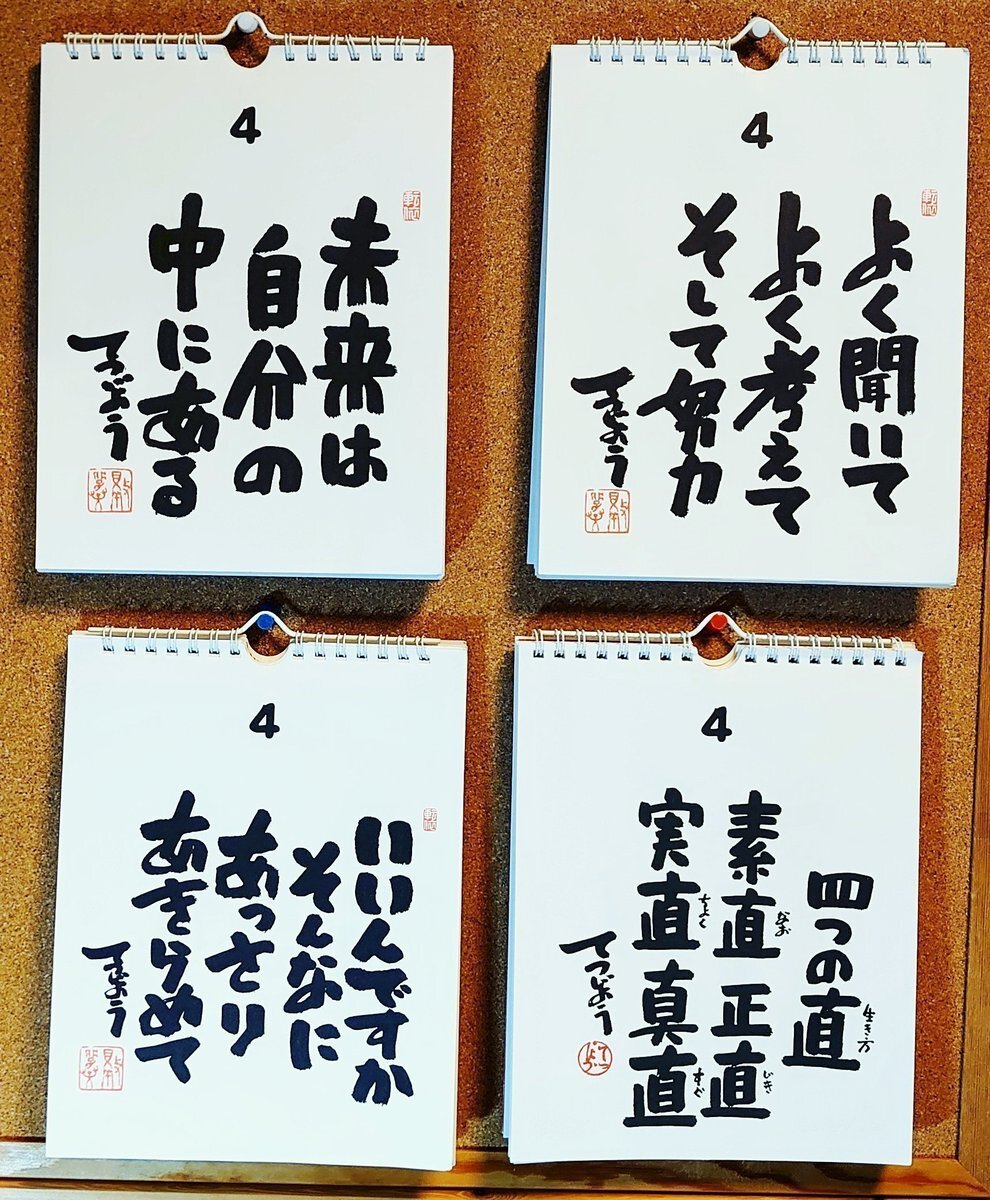 4
未来は
自分の
中にある
てつぎょう
4
よく聞いて
よく考えて
そして努力
4
いいんですか
そんなに
あっさり
あきらめて
4
四つの直
生き方
素直 正直
なお
じき
実直 真直
ちょく
すぐ